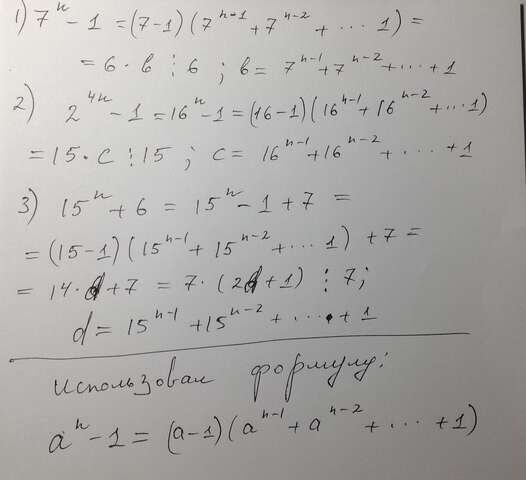 1) 7ⁿ - 1 = (7-1)(7ⁿ⁻¹ + 7ⁿ⁻² + ... 1) =
= 6 · b ⋮ 6 ; b = 7ⁿ⁻¹ + 7ⁿ⁻² + ... + 1
2) 2⁴ⁿ - 1 = 16ⁿ - 1 = (16-1)(16ⁿ⁻¹ + 16ⁿ⁻² + ... 1)
= 15 · c ⋮ 15 ; c = 16ⁿ⁻¹ + 16ⁿ⁻² + ... + 1
3) 15ⁿ + 6 = 15ⁿ - 1 + 7 =
= (15-1)(15ⁿ⁻¹ + 15ⁿ⁻² + ... 1) + 7 =
= 14 · d + 7 = 7 · (2d + 1) ⋮ 7;
d = 15ⁿ⁻¹ + 15ⁿ⁻² + ... + 1
Использовал формулу:
aⁿ - 1 = (a-1)(aⁿ⁻¹ + aⁿ⁻² + ... + 1)